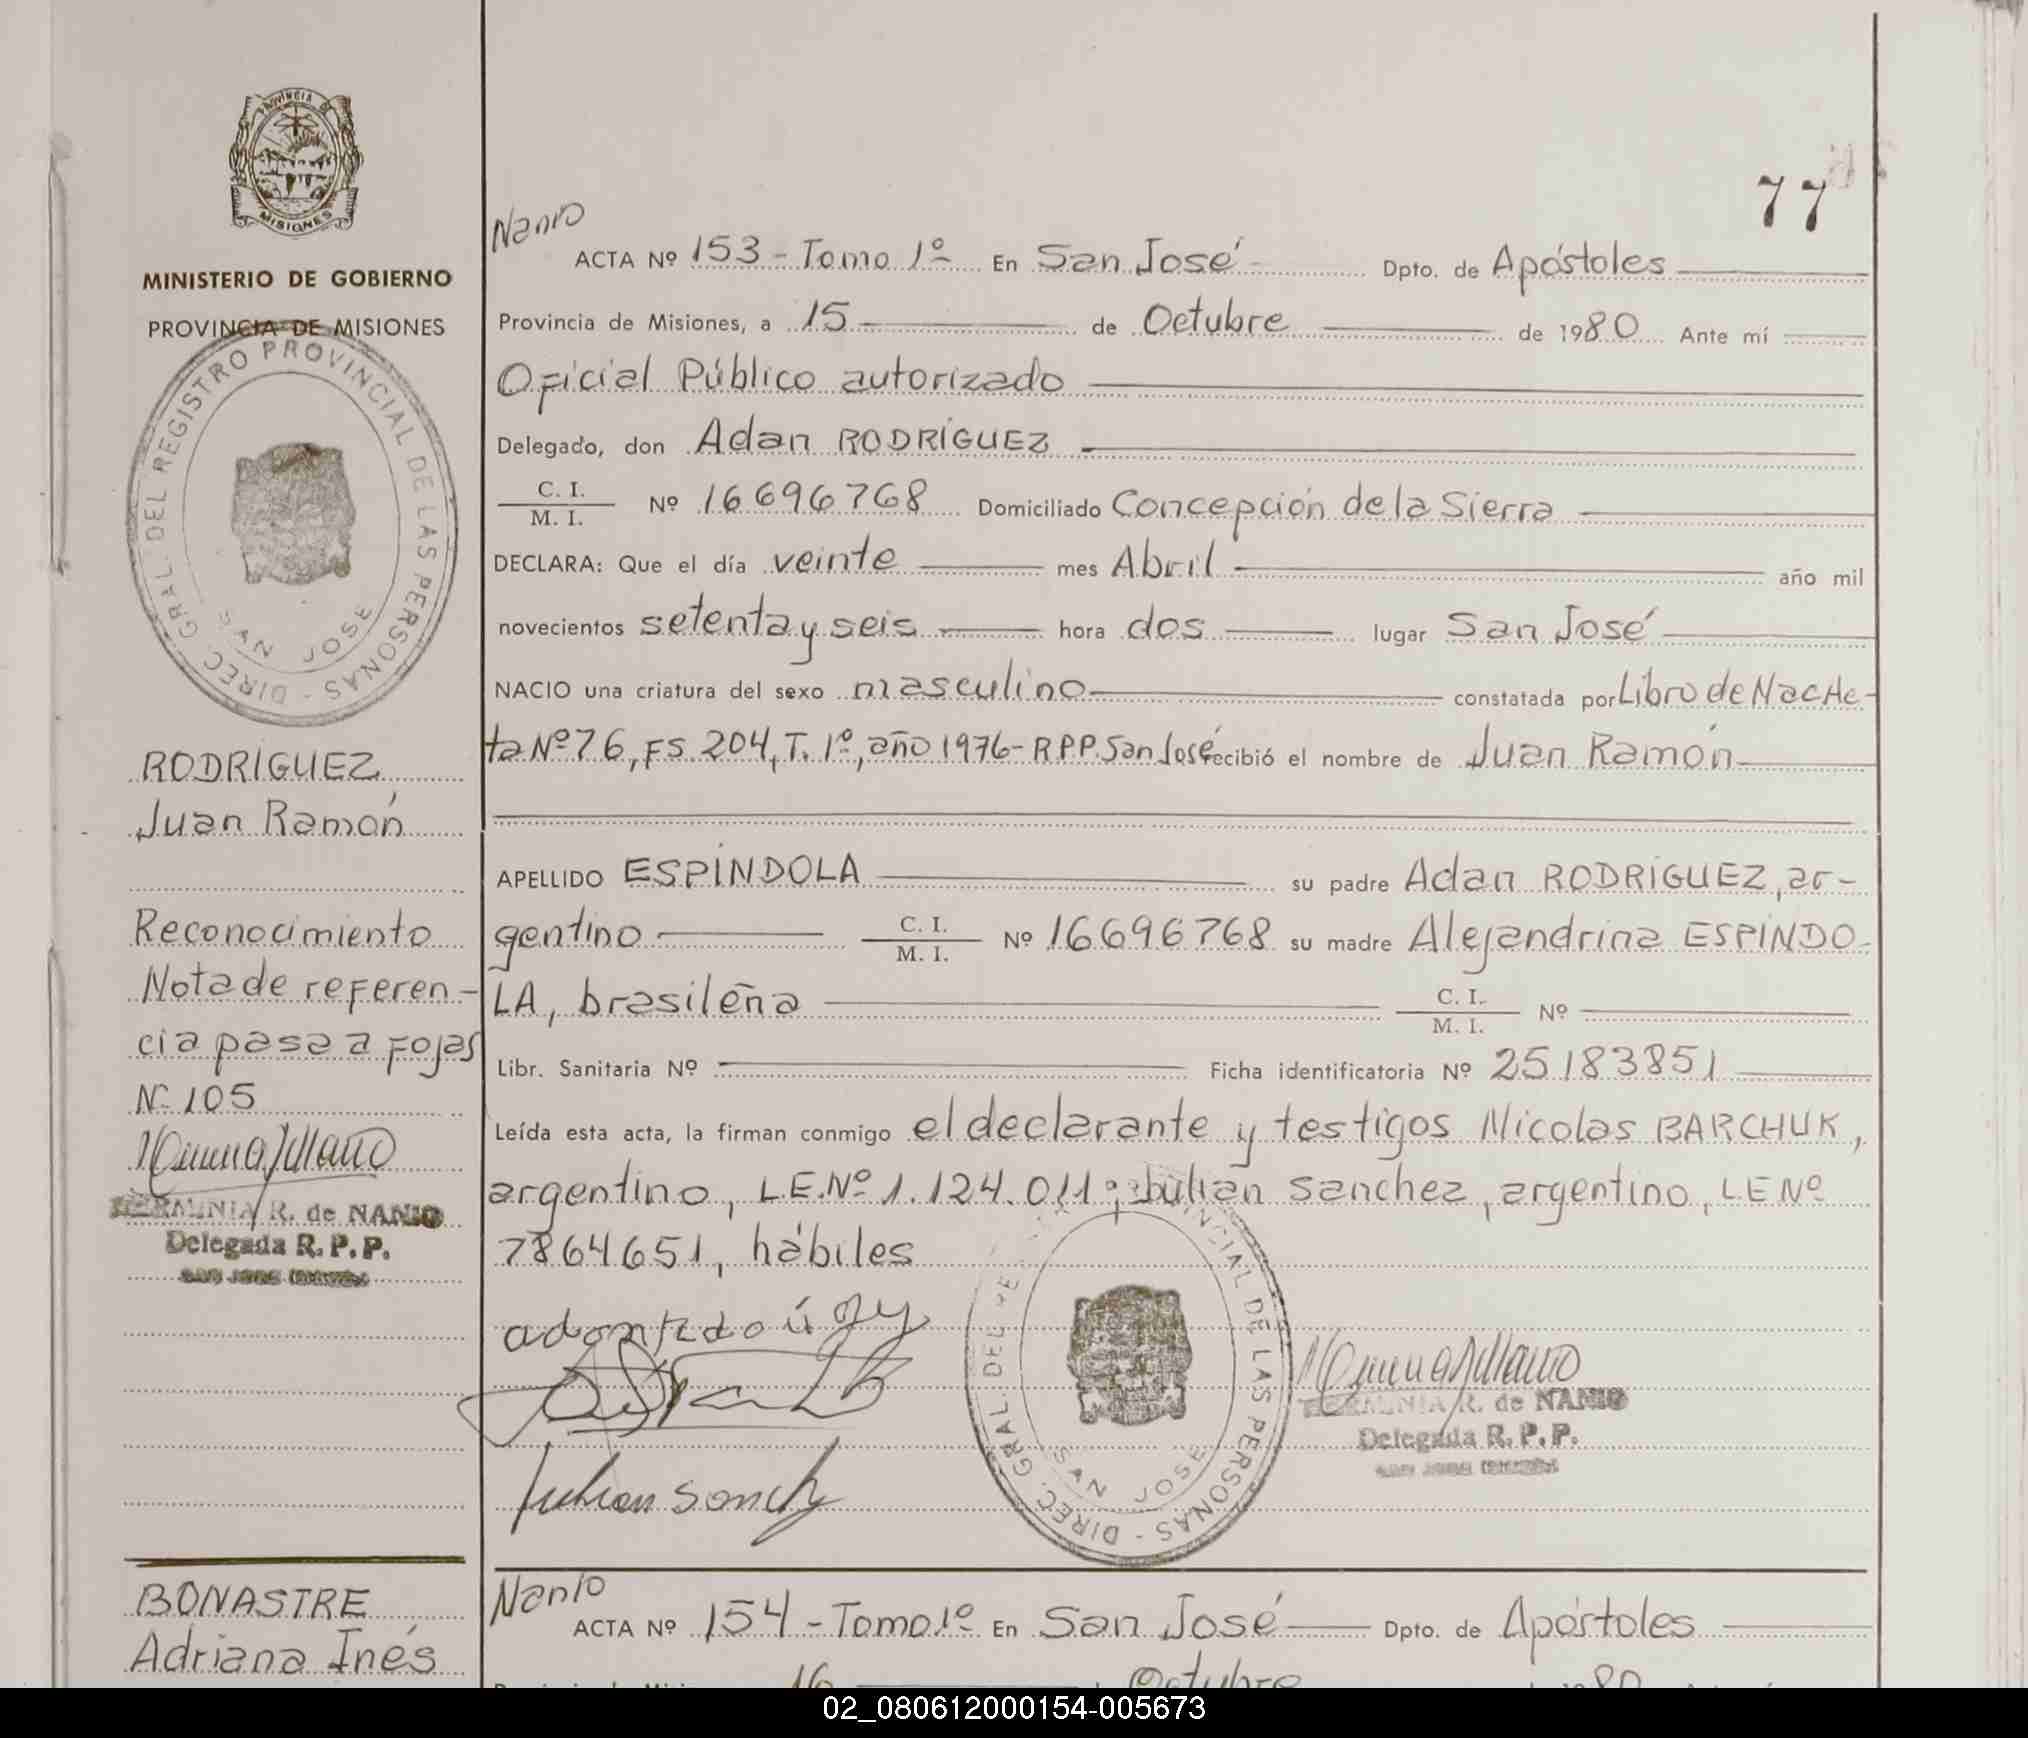 PROVINCIA DE
MISIONES
MINISTERIO DE GOBIERNO
PROVINCIA DE MISIONES
DIREC. GRAL. DEL REGISTRO PROVINCIAL DE LAS PERSONAS -
SAN JOSE
RODRÍGUEZ
Juan Ramón
Reconocimiento
Nota de referen-
cia pasa a fojas
Nº 105
HERMINIA R. de NANIO
Delegada R. P. P.
77
Nanio
ACTA Nº 153 - Tomo 1º - En San José - Dpto. de Apóstoles
Provincia de Misiones, a 15 de Octubre de 1980 Ante mí
Oficial Público autorizado
Delegado, don Adan RODRÍGUEZ
C. I.
M. I. Nº 16696768 Domiciliado Concepción de la Sierra
DECLARA: Que el día veinte mes Abril año mil
novecientos setenta y seis hora dos lugar San José
NACIO una criatura del sexo masculino constatada por Libro de Nac Ac-
ta Nº 76, FS. 204, T. 1º, año 1976- R.P.P. San José recibió el nombre de Juan Ramón
APELLIDO ESPÍNDOLA su padre Adan RODRÍGUEZ, ar-
gentino C. I. M. I. Nº 16696768 su madre Alejandrina ESPÍNDO-
LA, brasileña C. I. M. I. Nº
Libr. Sanitaria Nº Ficha identificatoria Nº 25183851
Leída esta acta, la firman conmigo el declarante y testigos Nicolas BARCHUK,
argentino, L.E.Nº 1.124.011; Julian Sanchez, argentino, L E Nº
7864651, hábiles
DIREC. GRAL. DEL RE PROVINCIAL DE LAS PERSONAS -
SAN JOSE
HERMINIA R. de NANIO
Delegada R. P. P.
BONASTRE
Adriana Inés
Nanio
ACTA Nº 154 - Tomo 1º En San José Dpto. de Apóstoles
16 Octubre 80
02_080612000154-005673